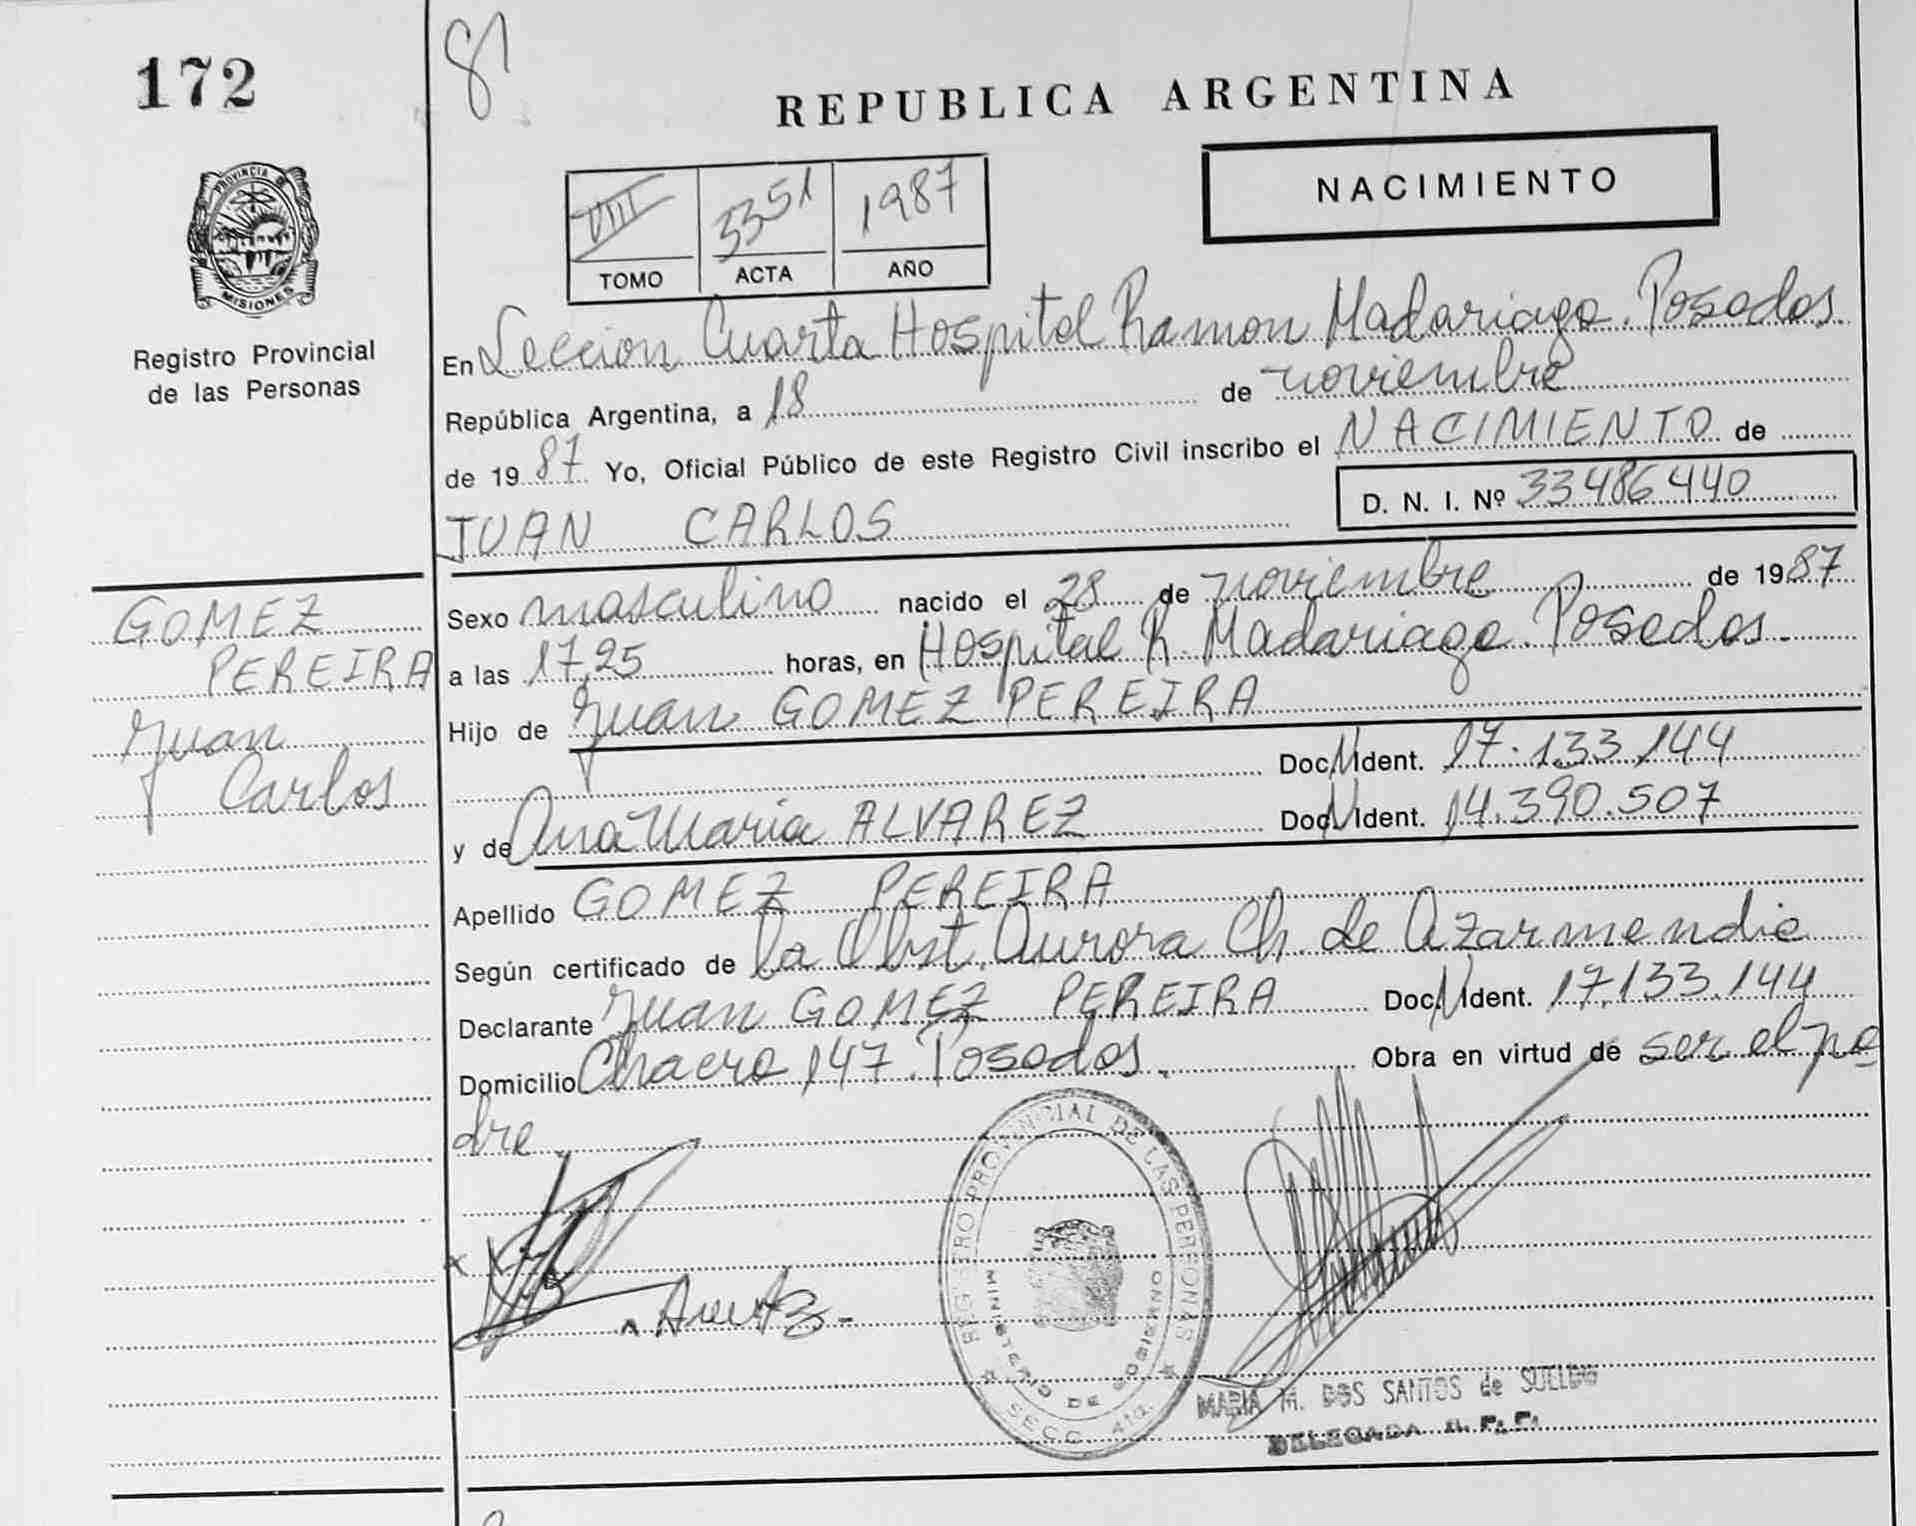 172
81
REPUBLICA ARGENTINA
PROVINCIA DE
MISIONES
NACIMIENTO
VIII 3351 1987
TOMO ACTA AÑO
Registro Provincial
de las Personas
En Seccion Cuarta Hospital Ramon Madariaga. Posadas.
República Argentina, a 18 de noviembre
de 1987 Yo, Oficial Público de este Registro Civil inscribo el NACIMIENTO de
D. N. I. Nº 33486440
JUAN CARLOS
GOMEZ
PEREIRA
Juan
Carlos
Sexo masculino nacido el 28 de noviembre de 1987
a las 17,25 horas, en Hospital R. Madariaga. Posadas.
Hijo de Juan GOMEZ PEREIRA
Doc.N Ident. 17.133.144
y de Ana Maria ALVAREZ Doc.N Ident. 14.390.507
Apellido GOMEZ PEREIRA
Según certificado de la Obst. Aurora Ch. de Azarmendia
Declarante Juan GOMEZ PEREIRA Doc.N Ident. 17.133.144
Domicilio Chaco 147. Posadas. Obra en virtud de ser el pa
dre
REGISTRO PROVINCIAL DE LAS PERSONAS
MINISTERIO DE GOBIERNO
SECC. 4ta.
MARIA M. DOS SANTOS de SUELDO
DELEGADA